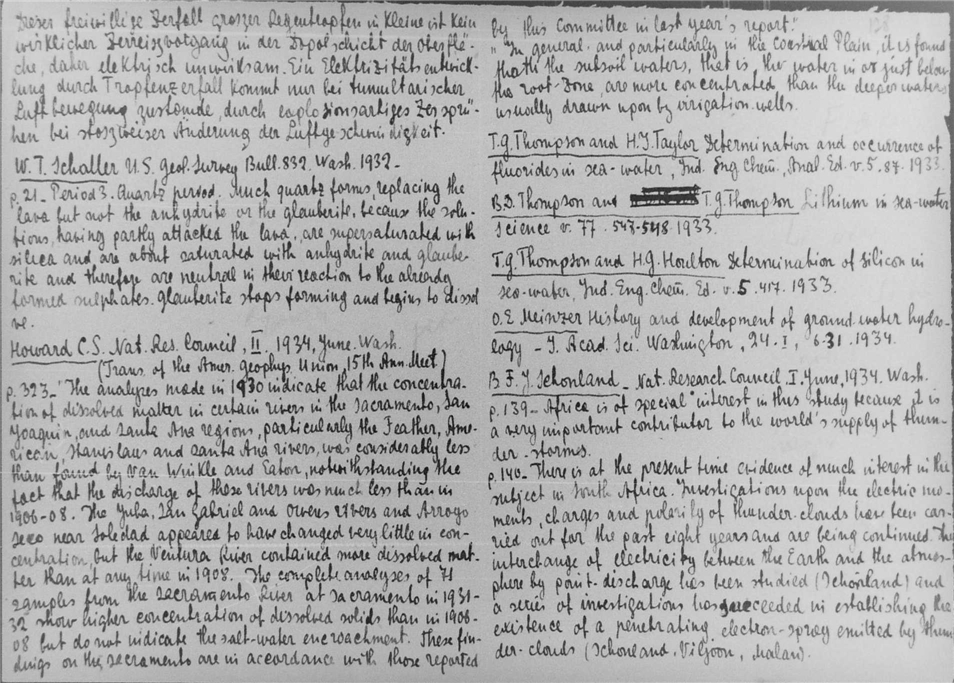 Dieser freiwillige Zerfall grosser Regentropfen in kleine ist kein
wirklicher Zerreissvorgang in der Dopolschicht der Oberflä-
che, daher elektrisch unwirksam. Ein Elektrizitätsentwick-
lung durch Tropfenzerfall kommt nur bei tumultarischer
Luftbewegung zustande, durch explosionsartiges Zersprü-
hen bei stoszweiser Änderung der Luftgeschwindigkeit.
W. T. Schaller U.S. Geol. Survey Bull. 832. Wash. 1932-
p. 21- Period 3. Quartz period. Much quartz forms, replacing the
lava but not the anhydrite or the glauberite, because the solu-
tions, having partly attacked the lava, are supersaturated with
silica and are about saturated with anhydrite and glaube-
rite and therefore are neutral in their reaction to the already
formed sulphates. Glauberite stops forming and begins to dissol
ve.
Howard C.S. Nat. Res. Council, II. 1934, June. Wash.
(Trans. of the Amer. Geophys. Union, 15th Ann. Meet)
p. 323-"The analyzes made in 1930 indicate that the concentra-
tion of dissolved matter in certain rivers in the Sacramento, San
Joaquin, and Santa Ana regions, particularly the Feather, Ame-
rican, Stanislaus and Santa Ana rivers, was considerably less
than found by Van Winkle and Eaton, notwithstanding the
fact that the discharge of those rivers was much less than in
1906-08. The Yuba, San Gabriel and Owens rivers and Arroyo
Seco near Soledad appeared to have changed very little in con-
centration, but the Ventura River contained more dissolved mat-
ter than at any time in 1908. The complete analyses of 71
samples from the Sacramento River at Sacramento in 1931-
32 show higher concentration of dissolved solids than in 1906-
08 but do not indicate the salt-water encroachment. These fin-
dings on the Sacramento are in accordance with those reported
by this Committee in last year's report."
"In general and particularly in the Coastal Plain, it is found
that the subsoil waters, that is, the water in or just below
the root-zone, are more concentrated than the deeper waters
usually drawn upon by irrigation wells.
T.G. Thompson and H.J. Taylor Determination and occurrence of
fluorides in sea-water, Ind. Eng Chem, Anal. Ed. v. 5. 87. 1933.
B.D. Thompson and T.G. Thompson Lithium in sea-water
Science v. 77. 547-548. 1933.
T.G. Thompson and H.G. Houlton Determination of Silicon in
sea-water, Ind. Eng. Chem. Ed. v. 5. 417. 1933.
O.E Meinzer History and development of ground water hydro-
logy - J. Acad. Sci. Washington, 24. I, 6-31. 1934.
B F. J. Schonland - Nat. Research Council, I. June, 1934. Wash.
p. 139- Africa is of special interest in this study because it is
a very important contributor to the world's supply of thun-
der-stormes.
p. 140- There is at the present time evidence of much interest in the
subject in South Africa. Investigations upon the electric mo-
ments, charges and polarily of thunder-clouds have been car-
ried out for the past eight years and are being continued. The
interchange of electricity between the Earth and the atmos-
phere by point-discharge has been studied (Schonland) and
a series of investigations has succeeded in establishing the
existence of a penetrating electron-spray emitted by thun
der-clouds (Schonland, Viljoon, Malan).